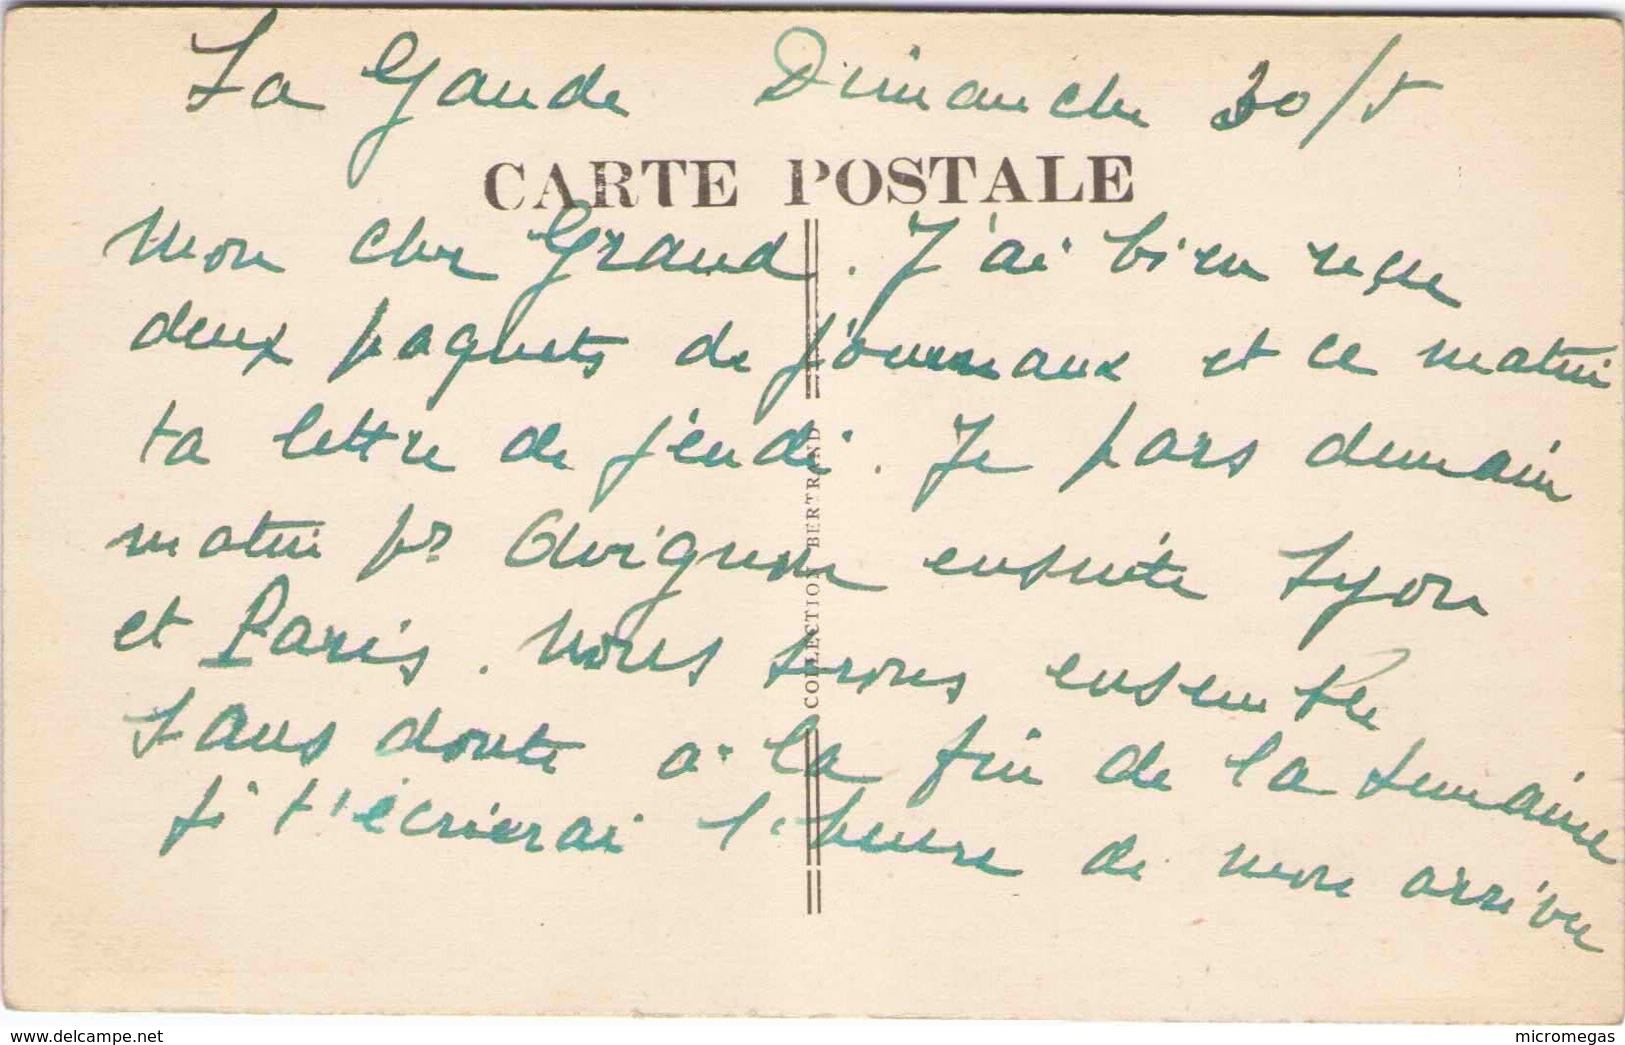 La Gaude Dimanche 30/5
CARTE POSTALE
Mon cher Grand. J'ai bien reçu
deux paquets de journaux et ce matin
ta lettre de jeudi. Je pars demain
matin pr Avignon ensuite Lyon
et Paris. Nous serons ensemble
sans doute à la fin de la semaine
je t'écrirerai l'heure de mon arrivée
COLLECTION BERTRAND
www.delcampe.net
micromegas